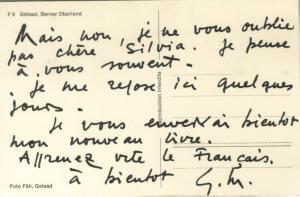 F 8 Gstaad, Berner Oberland
Mais non, je ne vous oublie
pas chère Silvia. Je pense
à vous souvent.
je me repose ici quelques
jours.
Je vous enverrai bientot
mon nouveau livre.
Apprenez vite le Français.
à bientot G. M.
Foto Fäh, Gstaad
Reproduction interdite